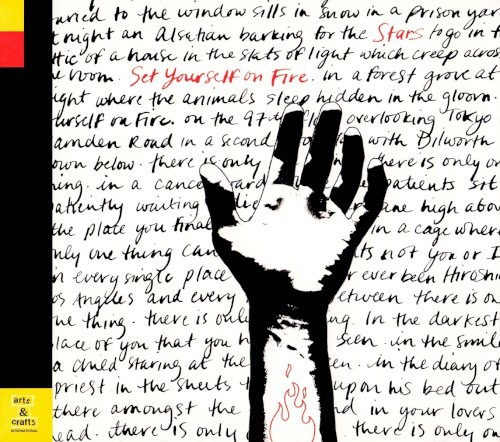 to the window sills in snow in a prison yar
night an Alsatian barking for the Stars to go in t
ttic of a house in the slats of light which creep acros
room. Set Yourself on Fire. in a forest grove at
ight where the animals sleep hidden in the gloom.
urself on Fire. on the 97th fl overlooking Tokyo
amden Road in a second with Dilworth
own below. there is only there is only on
hing. in a cance ard patients sit
atiently waiting die ane high abov
the plate you final in a cage wher
nly one thing can ts not you or I
in every single place r ever been Hiroshi
os Angeles and every etween there is on
ne thing. there is only ng. In the darkest
lace of you that you h seen. in the smile
a child staring at the en. in the diary of
priest in the sheets upon his bed out
there amongst the nd in your lovers
ead. there is only there is only o
arts
&
crafts
INTERNATIONAL